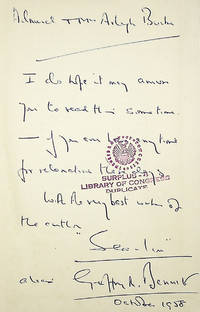 Admiral & Mrs Arleigh Burke
I do hope it may amuse
you to read this sometime
— if you ever have any time
for relaxation these days
SURPLUS
LIBRARY OF CONGRESS
DUPLICATE
with the very best wishes of
the author
"Sea-Lion"
alias Geoffrey M. Bennett
October 1958